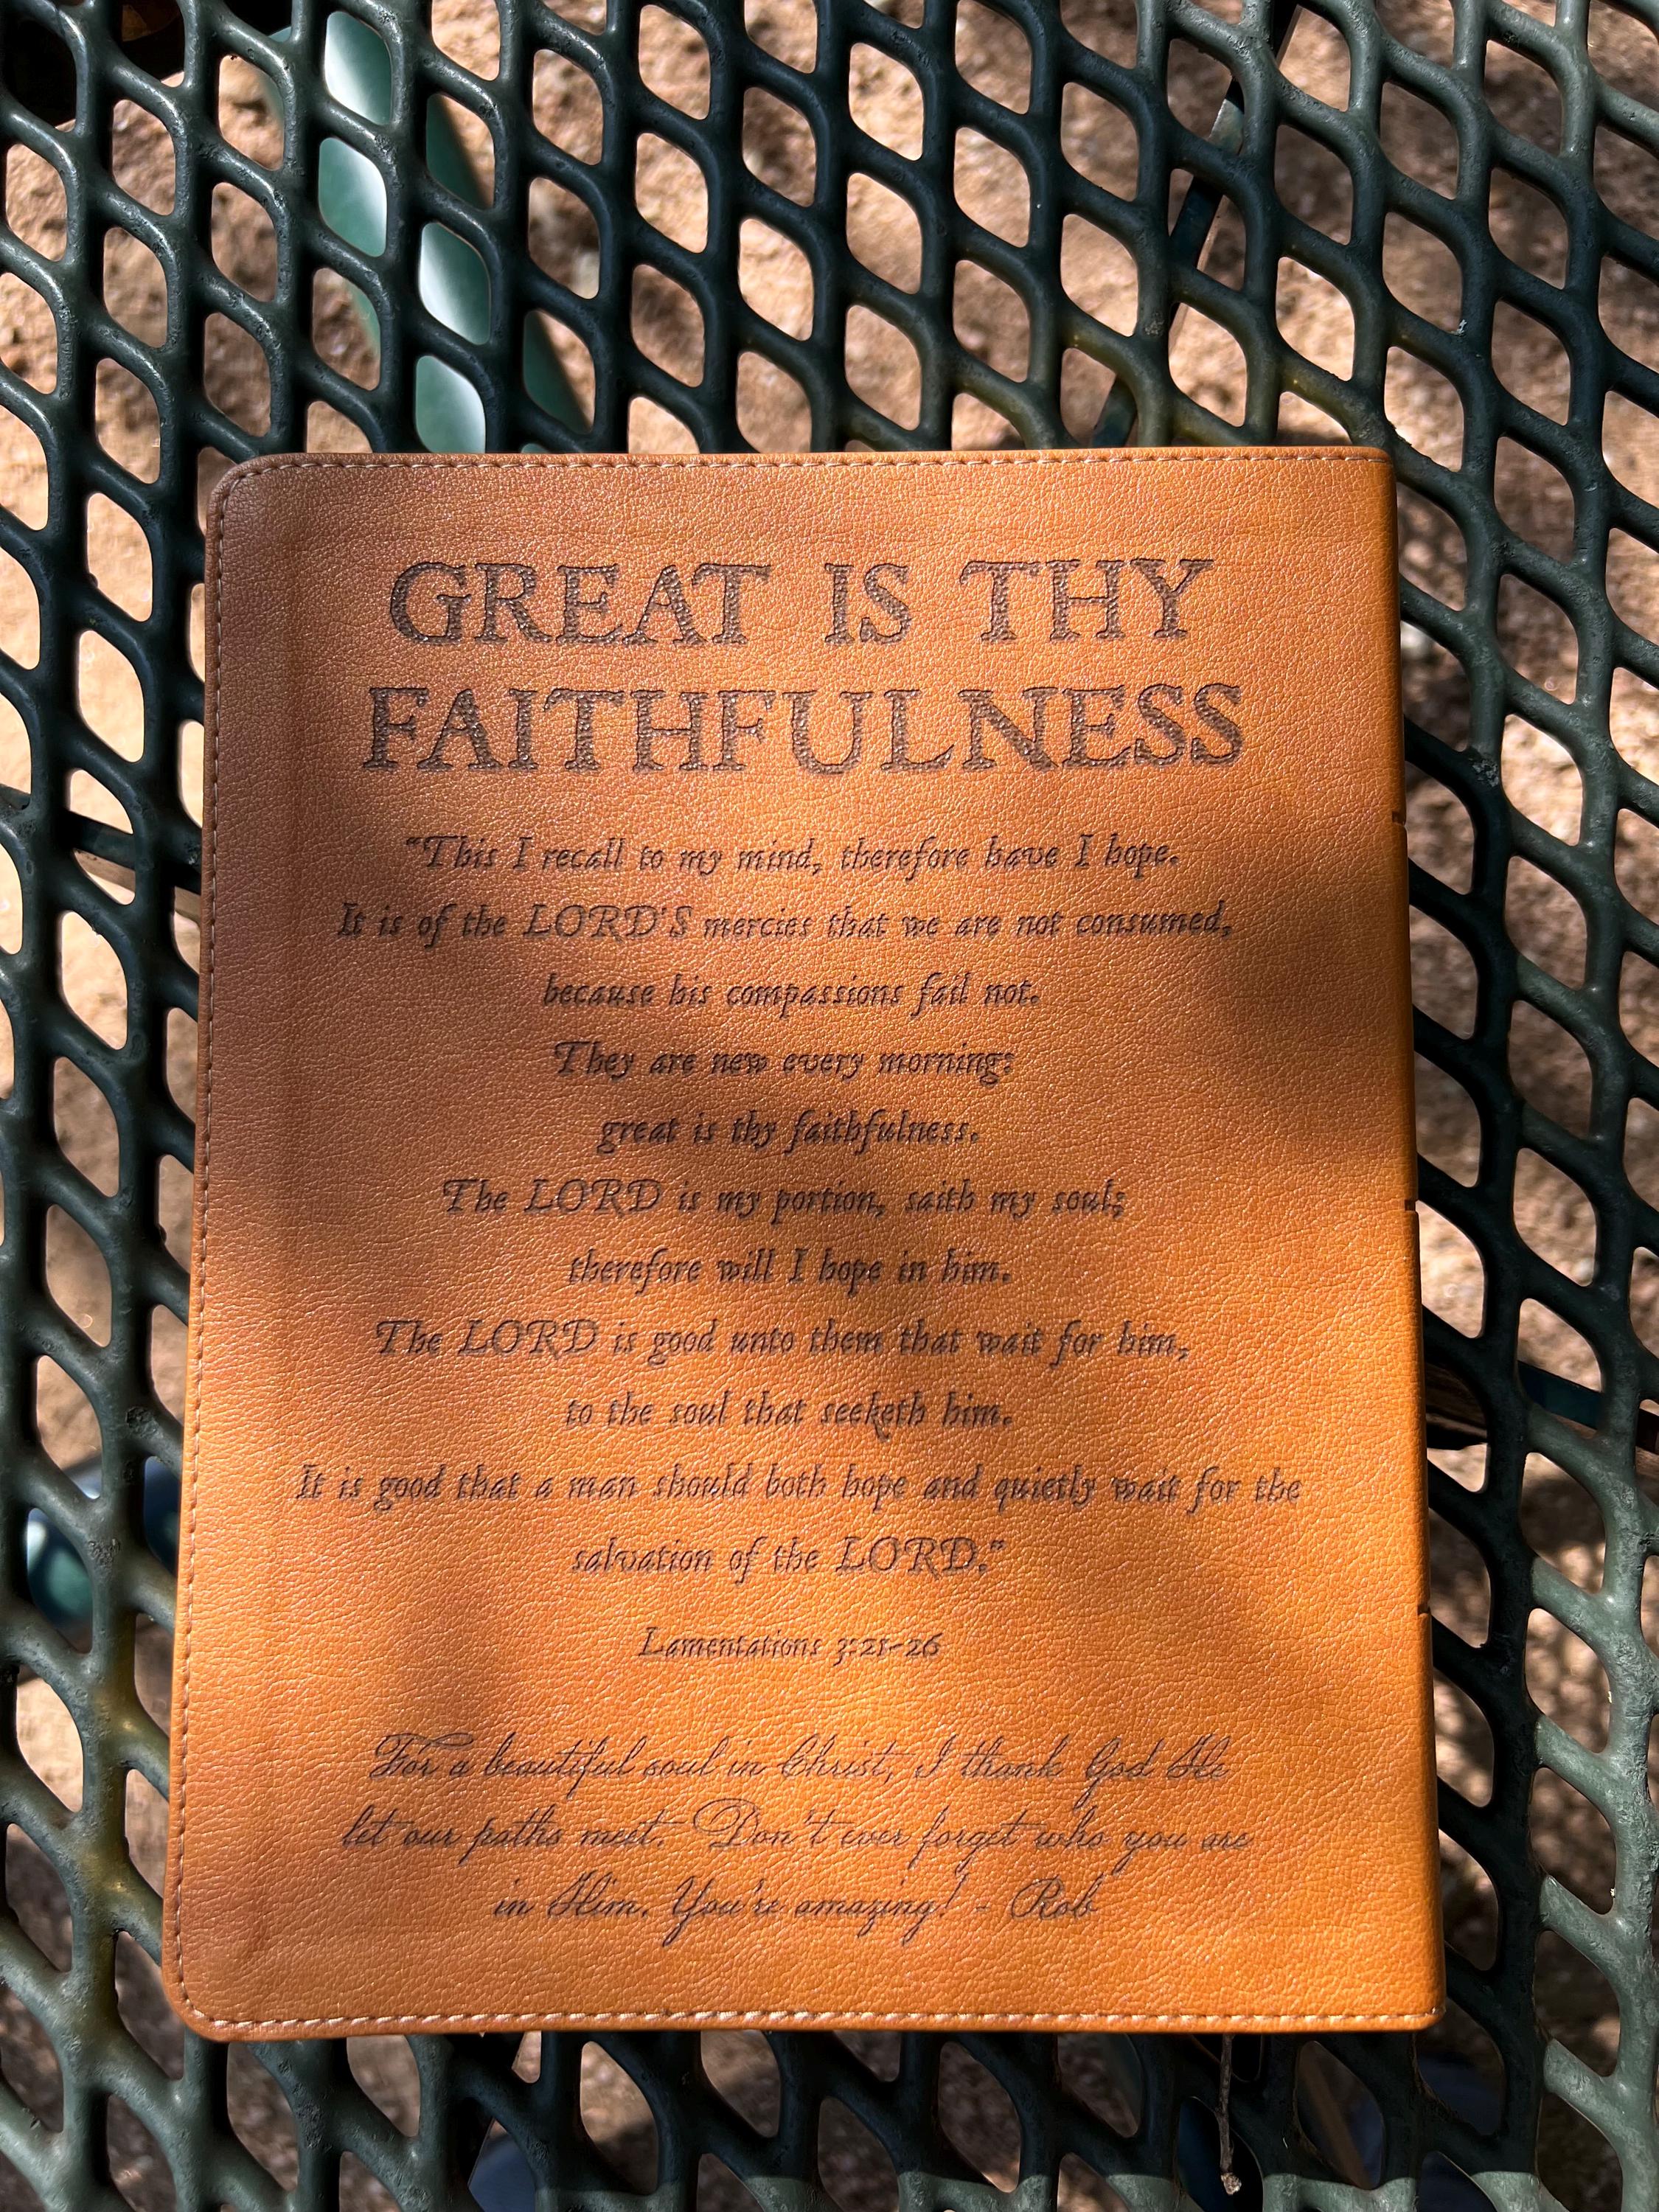 GREAT IS THY
FAITHFULNESS
"This I recall to my mind, therefore have I hope.
It is of the LORD'S mercies that we are not consumed,
because his compassions fail not.
They are new every morning:
great is thy faithfulness.
The LORD is my portion, saith my soul;
therefore will I hope in him.
The LORD is good unto them that wait for him,
to the soul that seeketh him.
It is good that a man should both hope and quietly wait for the
salvation of the LORD."
Lamentations 3:21-26
For a beautiful soul in Christ, I thank God He
let our paths meet. Don't ever forget who you are
in Him. You're amazing! - Rob